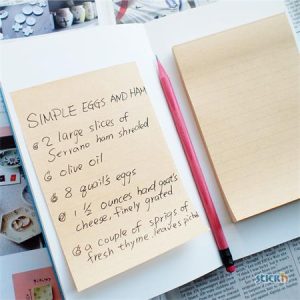 SIMPLE EGGS AND HAM
2 large slices of
Serrano ham shreded
olive oil
8 quail's eggs
1 ½ ounces hard goat's
cheese, finely grated
a couple of sprigs of
fresh thyme leaves picked
STICK'N